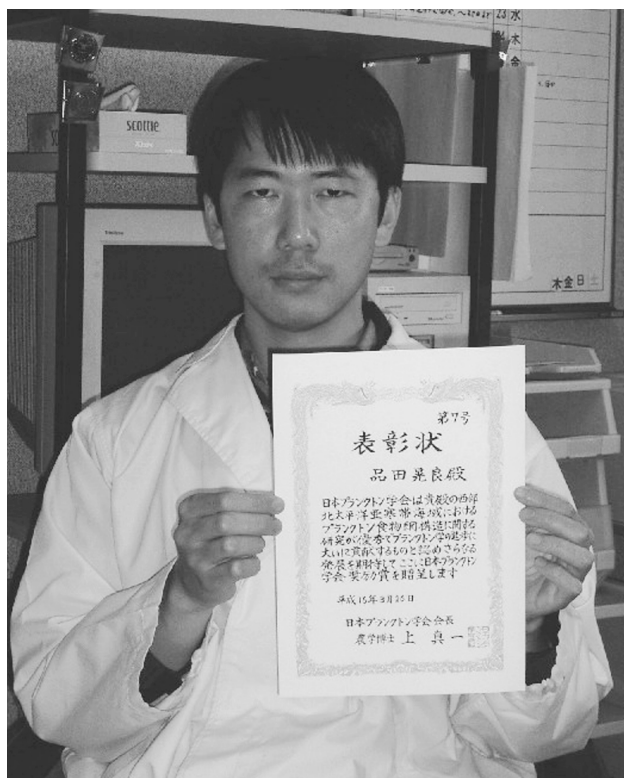 水
木
金
scottie
木金日土
第7号
表彰状
品田晃良殿
日本プランクトン学会は貴殿の西部
北太平洋亜寒帯海域における
プランクトン食物網構造に関する
研究が優秀でプランクトン学の進歩に
大いに貢献するものと認めさらなる
発展を期待してここに日本プランクトン
学会奨励賞を贈呈します
日本プランクトン学会会長
農学博士 上 真一